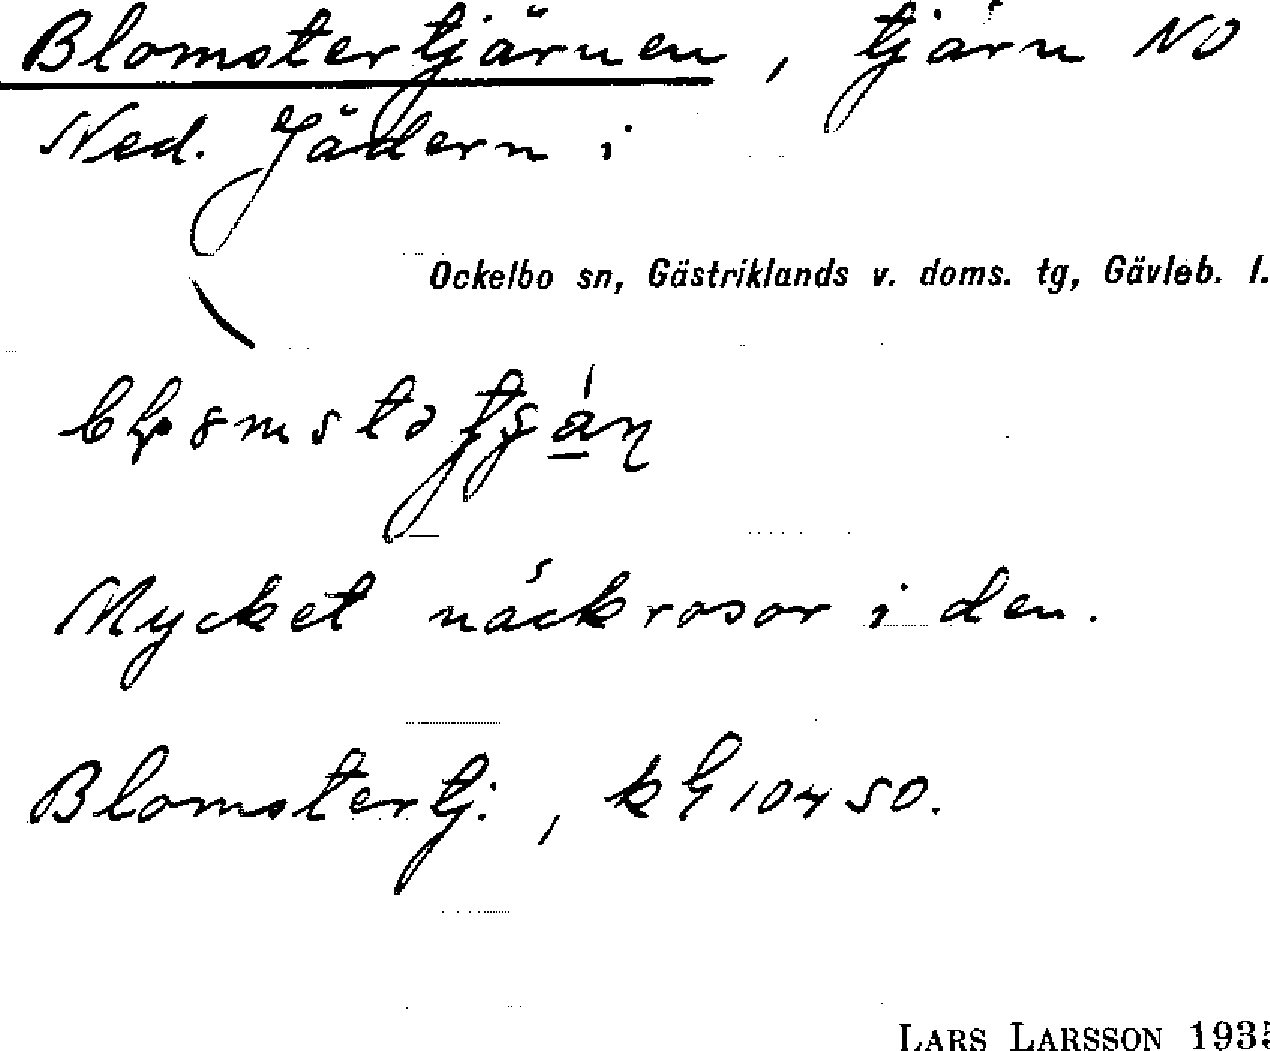 Blomstertjärnen, tjärn NO
Ned. Jädern i
Ockelbo sn, Gästriklands v. doms. tg, Gävleb. l.
Mycket näckrosor i den.
Blomstertj., kbl 104 50.
LARS LARSSON 1935